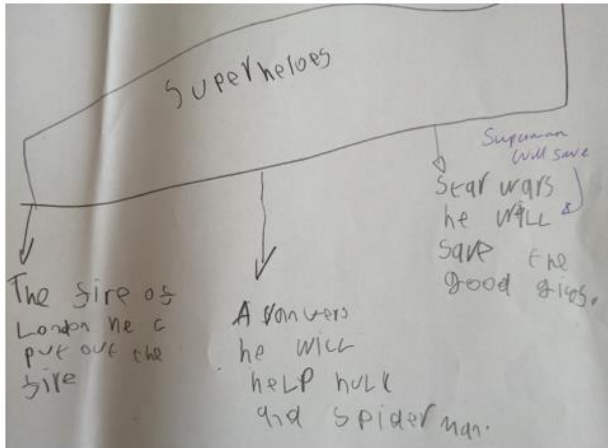 Superheloes
Supuman
Will save
Star wars
he will
save the
good gigs.
The fire of
London he c
put out the
fire
Avangers
he will
help hulk
and spiderman.